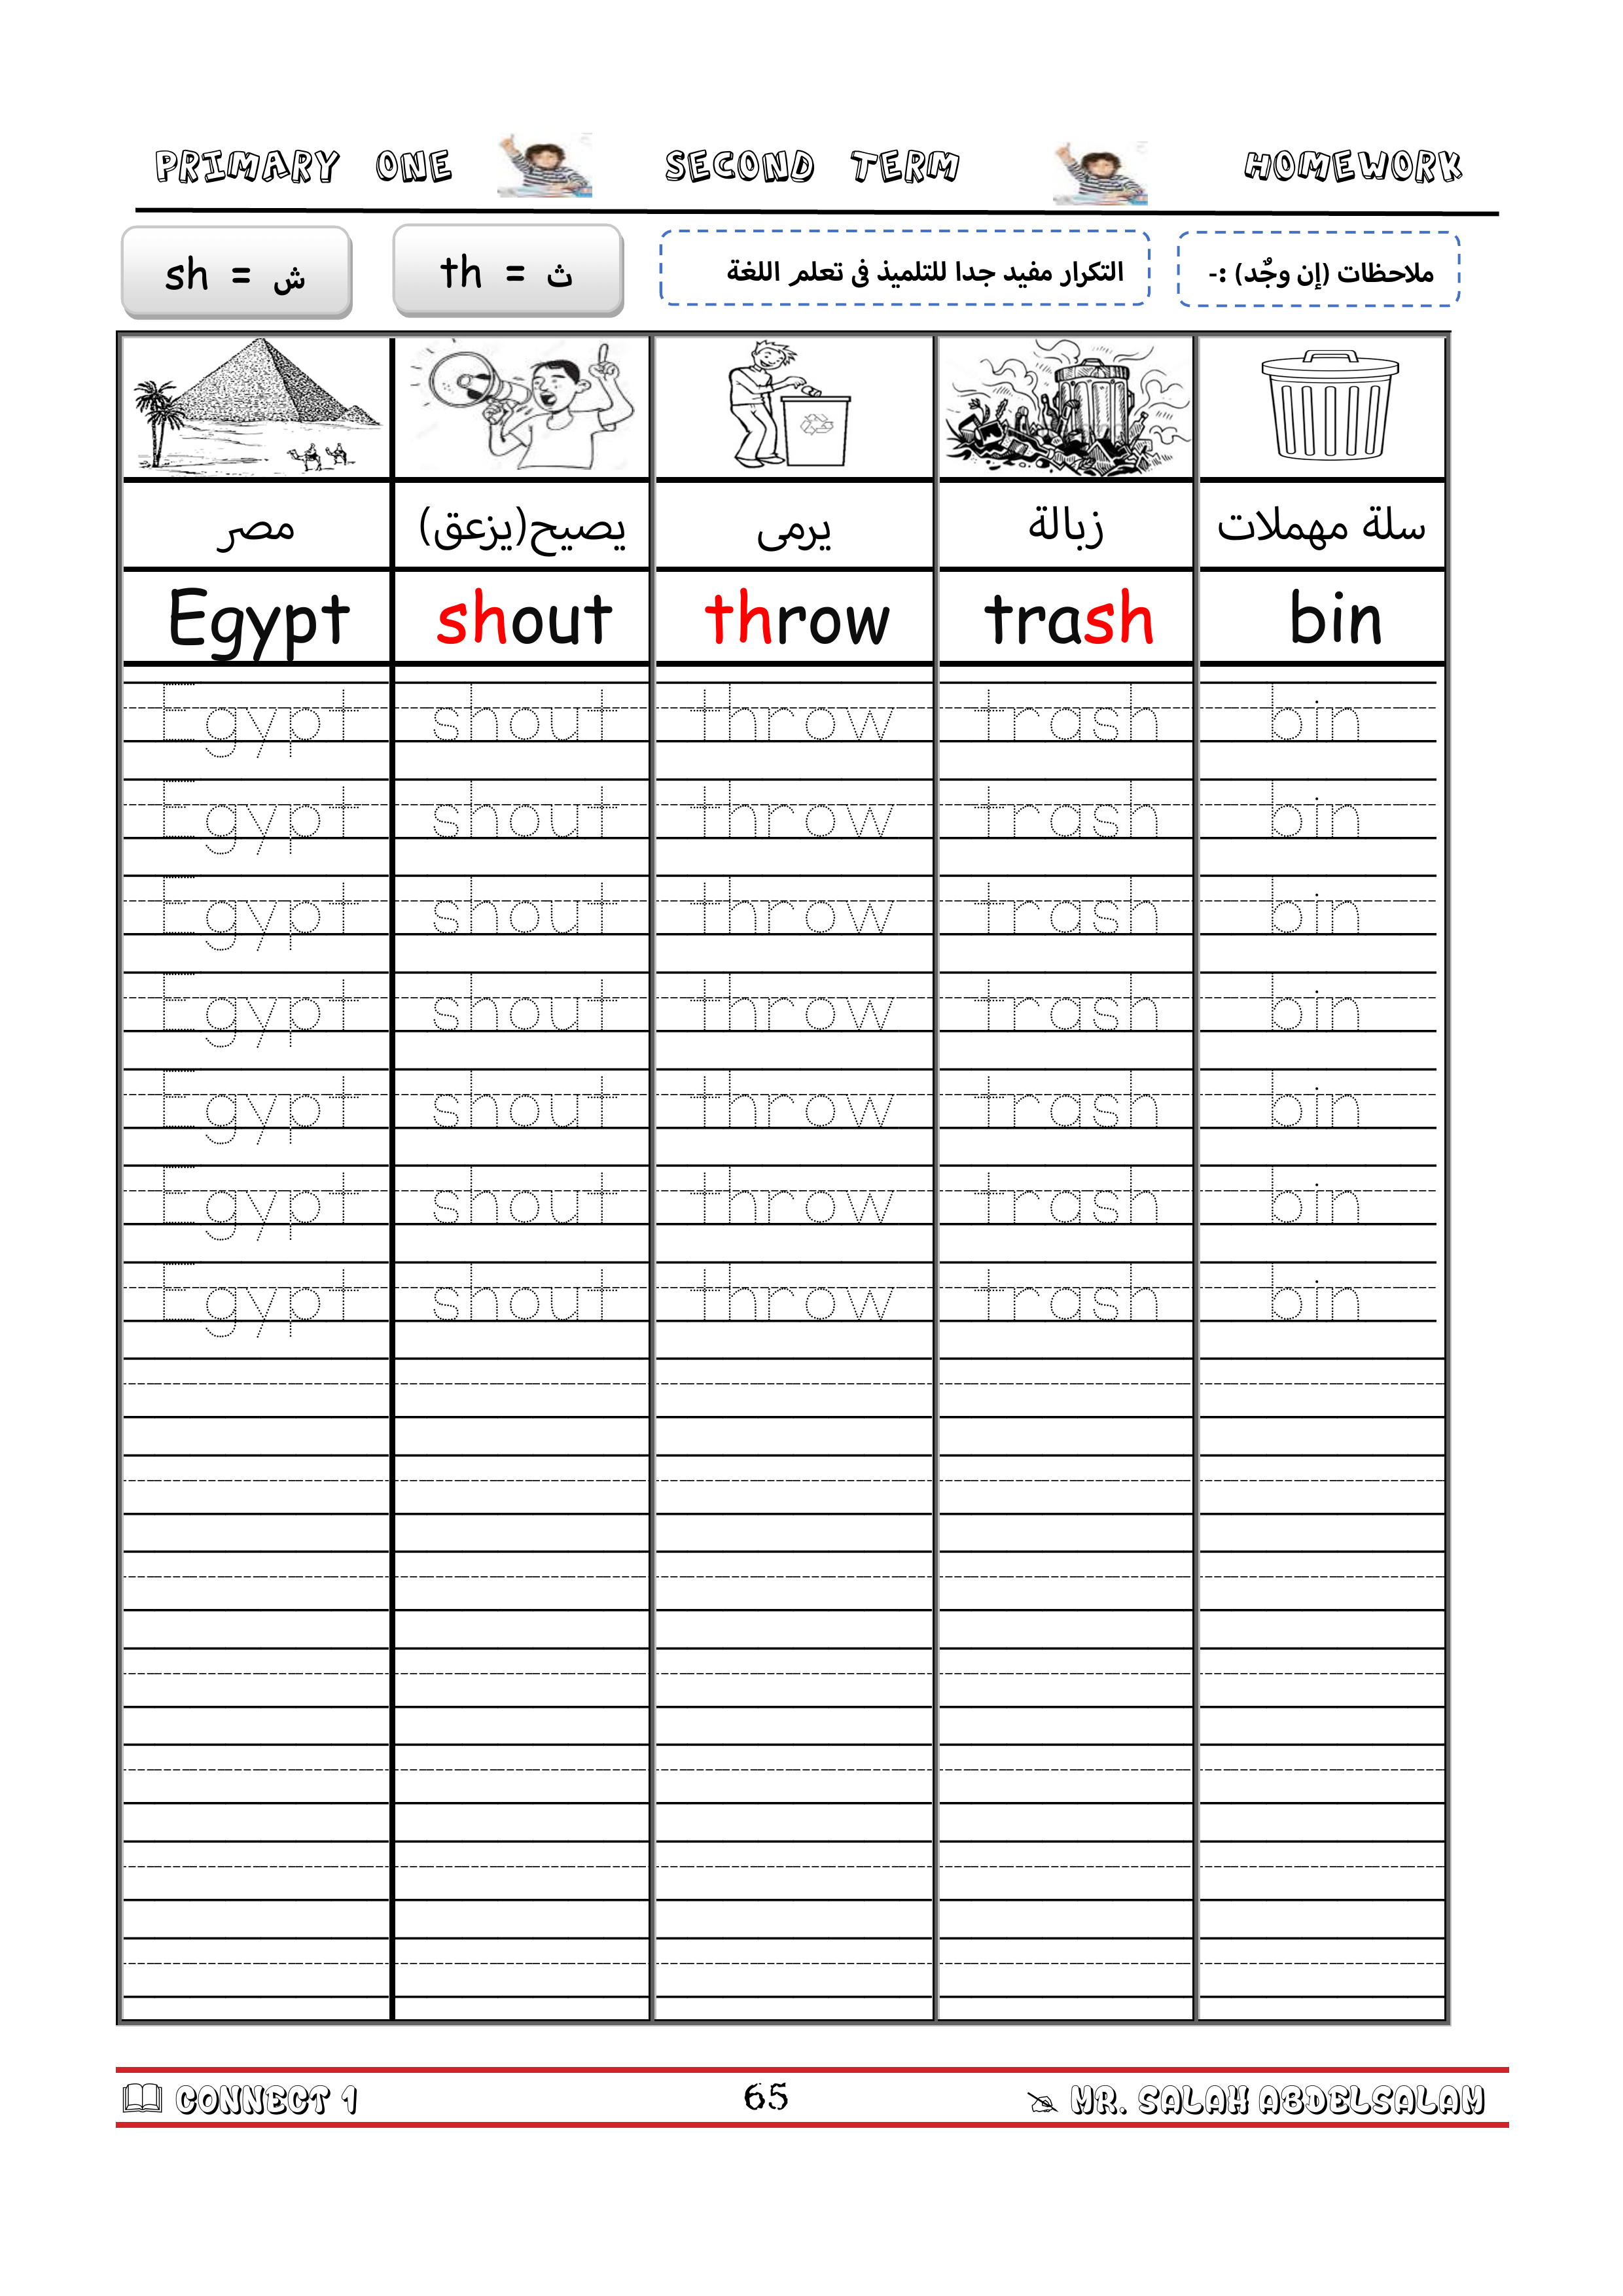 PRIMARY ONE SECOND TERM HOMEWORK
sh = ش th = ث التكرار مفيد جدا للتلميذ فى تعلم اللغة ملاحظات (إن وجٌد) :-
مصر يصيح(يزعق) يرمى زبالة سلة مهملات
Egypt shout throw trash bin
Egypt shout throw trash bin
Egypt shout throw trash bin
Egypt shout throw trash bin
Egypt shout throw trash bin
Egypt shout throw trash bin
Egypt shout throw trash bin
Egypt shout throw trash bin
CONNECT 1 65 MR. SALAH ABDELSALAM